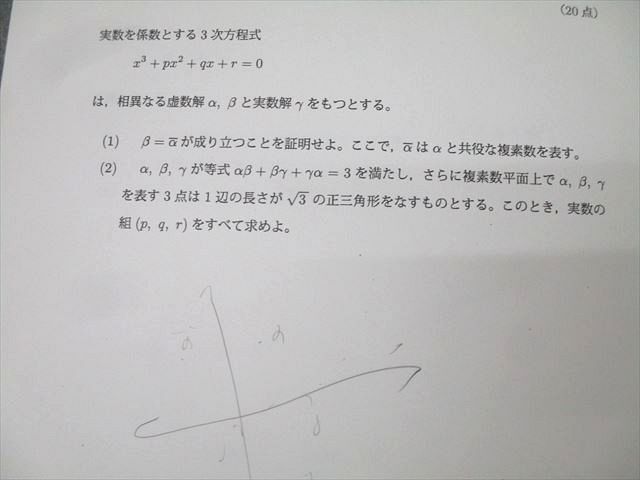 (20点)
実数を係数とする3次方程式
x³+px²+qx+r=0
は，相異なる虚数解 α, β と実数解 γ をもつとする。
(1) β=α̅ が成り立つことを証明せよ。ここで，α̅ は α と共役な複素数を表す。
(2) α, β, γ が等式 αβ+βγ+γα=3 を満たし，さらに複素数平面上で α, β, γ
を表す3点は1辺の長さが √3 の正三角形をなすものとする。このとき，実数の
組 (p, q, r) をすべて求めよ。
α̅ α
γ